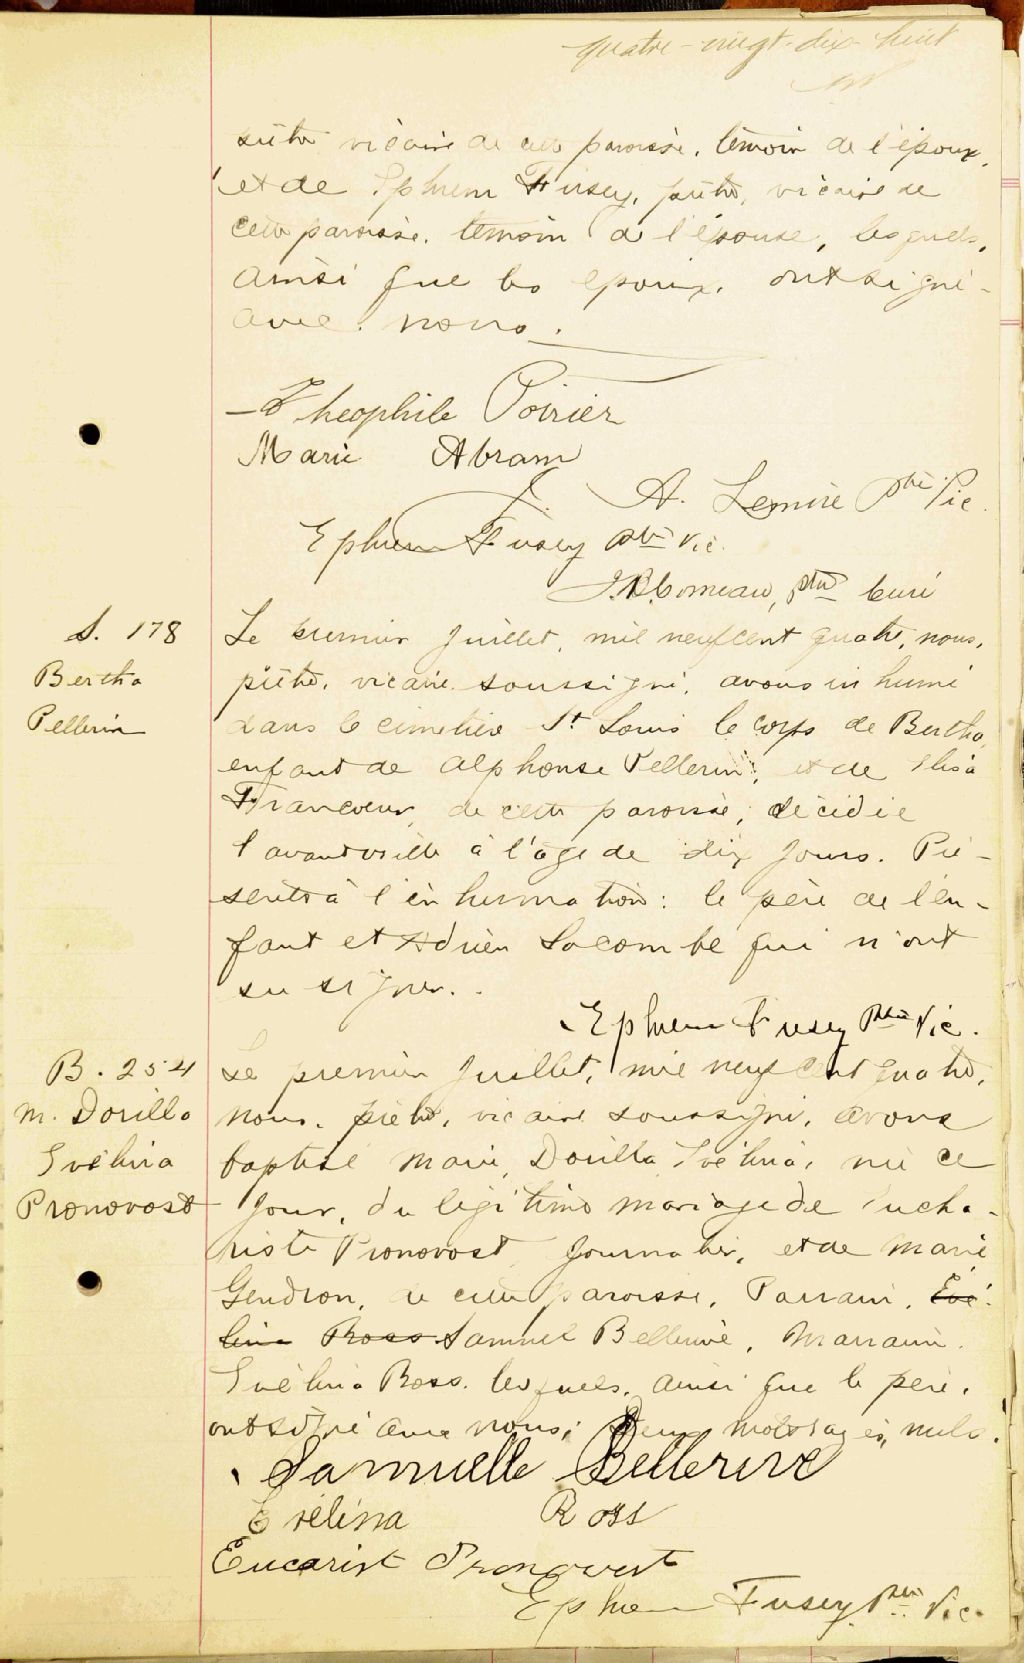 quatre-vingt-dix-huit
prêtre vicaire de cette paroisse, témoin de l'époux,
et de Ephrem Fusey, prêtre, vicaire de
cette paroisse, témoin de l'épouse, lesquels,
ainsi que les époux, ont signé
avec nous.
Theophile Poirier
Marie Abram
J. A. Lemire Ptre Vic.
Ephrem Fusey Ptre Vic.
Comeau, ptre Curé
S. 178
Bertha
Pellerin
Le premier Juillet, mil neuf cent quatre, nous,
prêtre, vicaire soussigné, avons inhumé
dans le cimetière St Louis le corps de Bertha,
enfant de Alphonse Pellerin, et de Elisa
Francoeur, de cette paroisse, décédée
l'avant veille à l'âge de dix jours. Pré-
sents à l'inhumation: le père de l'en-
fant et Adrien Lacombe qui n'ont
su signer.
Ephrem Fusey Ptre Vic.
B. 254
M. Dorilla
Evélina
Pronovost
Le premier Juillet, mil neuf cent quatre,
nous, prêtre, vicaire soussigné, avons
baptisé Marie, Dorilla, Evélina, née ce
jour, du légitime mariage de Eucha-
riste Pronovost, journalier, et de Marie
Gendron, de cette paroisse, Parrain, Evé-
lina Ross Samuel Bellerive, Marraine,
Evélina Ross, lesquels, ainsi que le père,
ont signé avec nous; deux mots rayés, nuls.
Samuelle Bellerive
Evélina Ross
Eucarist Pronovost
Ephrem Fusey, Ptre Vic.